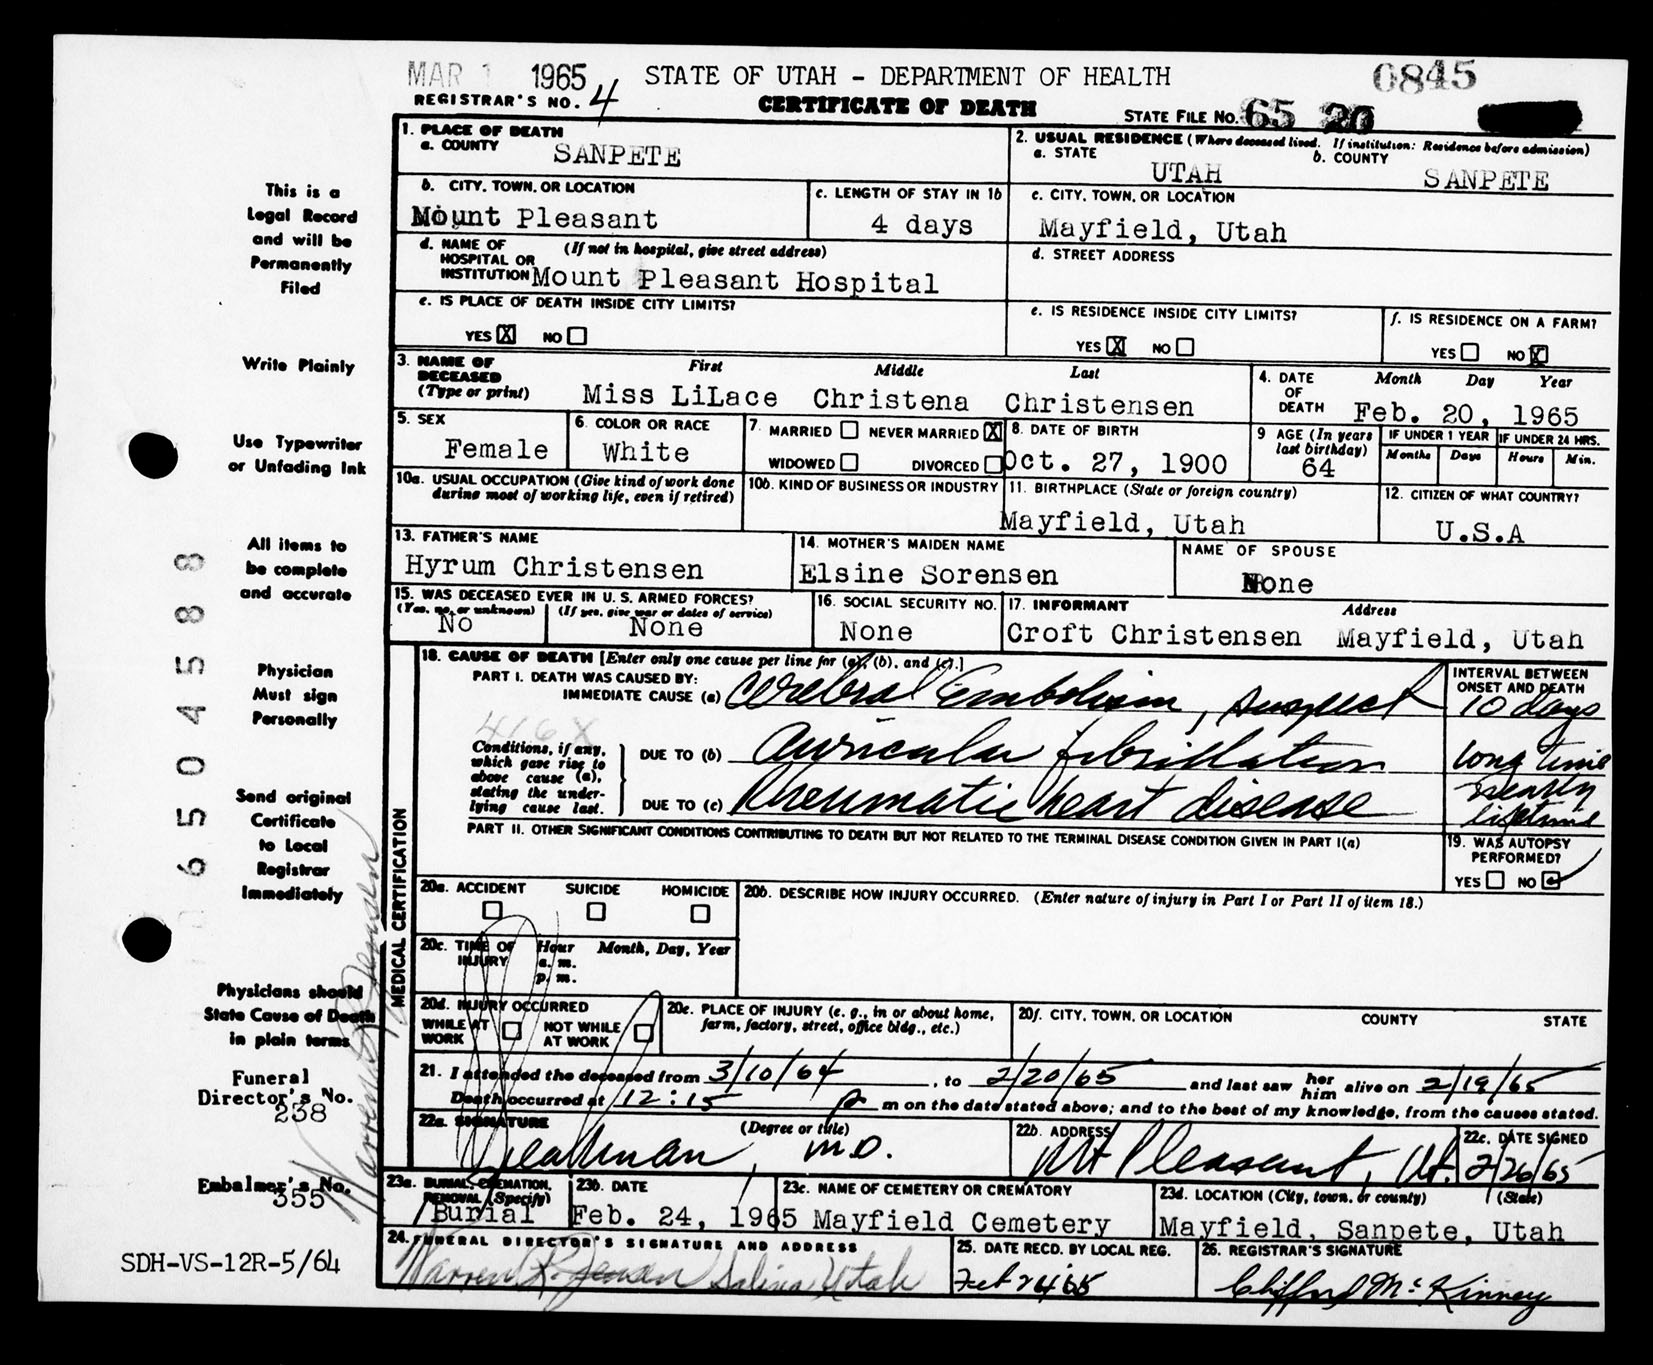 MAR 1965 STATE OF UTAH - DEPARTMENT OF HEALTH 0845
REGISTRAR'S NO. 4 CERTIFICATE OF DEATH STATE FILE NO. 65 20
1. PLACE OF DEATH
a. COUNTY SANPETE
2. USUAL RESIDENCE (Where deceased lived. If institution: Residence before admission)
a. STATE UTAH b. COUNTY SANPETE
b. CITY, TOWN, OR LOCATION Mount Pleasant
c. LENGTH OF STAY IN 1b 4 days
c. CITY, TOWN, OR LOCATION Mayfield, Utah
d. NAME OF HOSPITAL OR INSTITUTION (If not in hospital, give street address) Mount Pleasant Hospital
d. STREET ADDRESS
e. IS PLACE OF DEATH INSIDE CITY LIMITS?
YES X NO
e. IS RESIDENCE INSIDE CITY LIMITS?
YES X NO
f. IS RESIDENCE ON A FARM?
YES NO X
3. NAME OF DECEASED (Type or print) First Middle Last
Miss LiLace Christena Christensen
4. DATE OF DEATH Month Day Year
Feb. 20, 1965
5. SEX Female
6. COLOR OR RACE White
7. MARRIED NEVER MARRIED X
WIDOWED DIVORCED
8. DATE OF BIRTH Oct. 27, 1900
9 AGE (In years last birthday) 64
IF UNDER 1 YEAR Months Days
IF UNDER 24 HRS. Hours Min.
10a. USUAL OCCUPATION (Give kind of work done during most of working life, even if retired)
10b. KIND OF BUSINESS OR INDUSTRY
11. BIRTHPLACE (State or foreign country) Mayfield, Utah
12. CITIZEN OF WHAT COUNTRY? U.S.A
13. FATHER'S NAME Hyrum Christensen
14. MOTHER'S MAIDEN NAME Elsine Sorensen
NAME OF SPOUSE None
15. WAS DECEASED EVER IN U.S. ARMED FORCES?
(Yes, no, or unknown) (If yes, give war or dates of service)
No None
16. SOCIAL SECURITY NO. None
17. INFORMANT Address
Croft Christensen Mayfield, Utah
MEDICAL CERTIFICATION
18. CAUSE OF DEATH [Enter only one cause per line for (a), (b), and (c).]
PART I. DEATH WAS CAUSED BY:
IMMEDIATE CAUSE (a) Cerebral Embolism, suspect
INTERVAL BETWEEN ONSET AND DEATH
10 days
416X
Conditions, if any, which gave rise to above cause (a), stating the underlying cause last.
DUE TO (b) Auricular fibrillation long time
DUE TO (c) Rheumatic heart disease nearly lifetime
PART II. OTHER SIGNIFICANT CONDITIONS CONTRIBUTING TO DEATH BUT NOT RELATED TO THE TERMINAL DISEASE CONDITION GIVEN IN PART I(a)
19. WAS AUTOPSY PERFORMED?
YES NO
20a. ACCIDENT SUICIDE HOMICIDE
20b. DESCRIBE HOW INJURY OCCURRED. (Enter nature of injury in Part I or Part II of item 18.)
20c. TIME OF INJURY Hour a. m. p. m. Month, Day, Year
20d. INJURY OCCURRED
WHILE AT WORK NOT WHILE AT WORK
20e. PLACE OF INJURY (e. g., in or about home, farm, factory, street, office bldg., etc.)
20f. CITY, TOWN, OR LOCATION COUNTY STATE
21. I attended the deceased from 3/10/64, to 2/20/65 and last saw her him alive on 2/19/65
Death occurred at 12:15 p m on the date stated above; and to the best of my knowledge, from the causes stated.
22a. SIGNATURE (Degree or title)
M.D.
22b. ADDRESS Mt Pleasant, Ut.
22c. DATE SIGNED 2/26/65
23a. BURIAL, CREMATION, REMOVAL (Specify) Burial
23b. DATE Feb. 24, 1965
23c. NAME OF CEMETERY OR CREMATORY Mayfield Cemetery
23d. LOCATION (City, town, or county) (State)
Mayfield, Sanpete, Utah
24. FUNERAL DIRECTOR'S SIGNATURE AND ADDRESS
Warren R. Jensen Salina Utah
25. DATE RECD. BY LOCAL REG. Feb 24 65
26. REGISTRAR'S SIGNATURE Clifford McKinney
This is a
Legal Record
and will be
Permanently
Filed
Write Plainly
Use Typewriter
or Unfading Ink
All items to
be complete
and accurate
Physician
Must sign
Personally
Send original
Certificate
to Local
Registrar
Immediately
Physicians should
State Cause of Death
in plain terms
Funeral
Director's No.
238
Embalmer's No.
355
SDH-VS-12R-5/64
6504588
Warren R Jensen